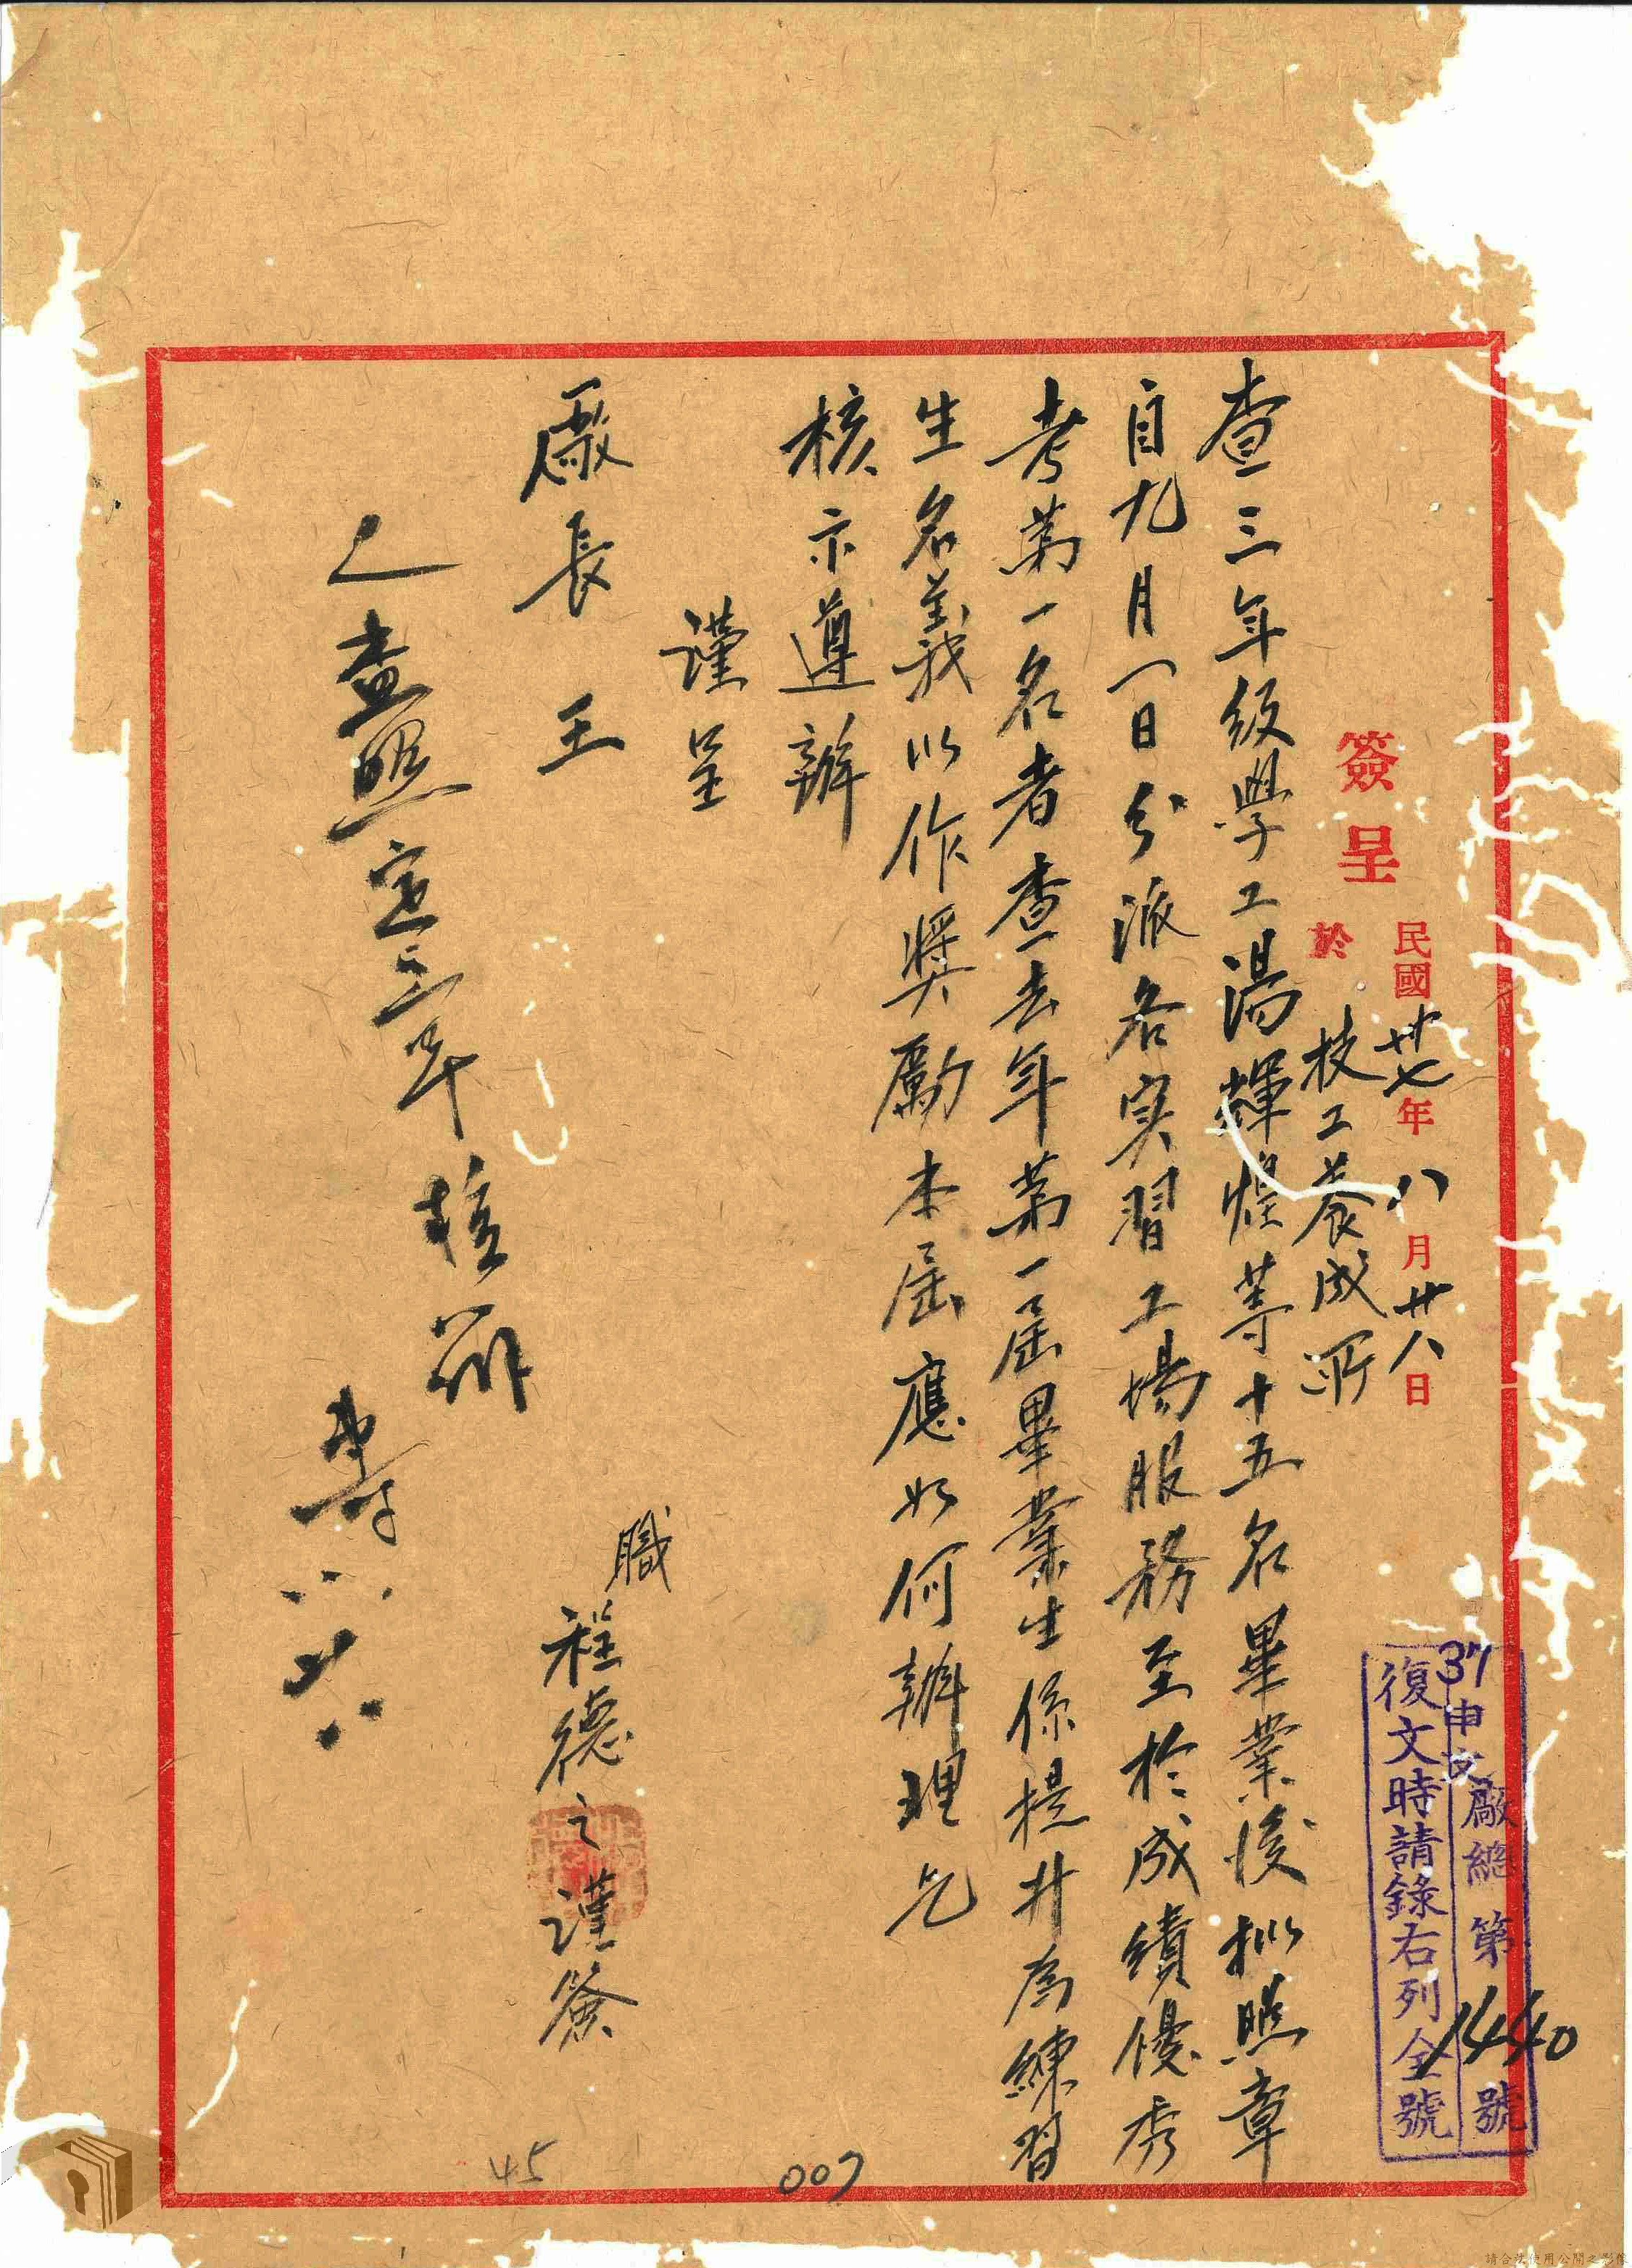 簽呈
民國卅七年八月廿八日
於技工養成所
37申文廠總第1440號
復文時請錄右列全號
查三年級學工湯輝煌等十五名畢業後擬照章
自九月一日分派各实習工場服務至於成績優秀
考第一名者查去年第一屆畢業生係提升為練習
生名義以作獎勵本屆應如何辦理乞
核示遵辦
謹呈
廠長王
職程德之謹簽
查照
核辦
007
45
請合法使用公開之影像